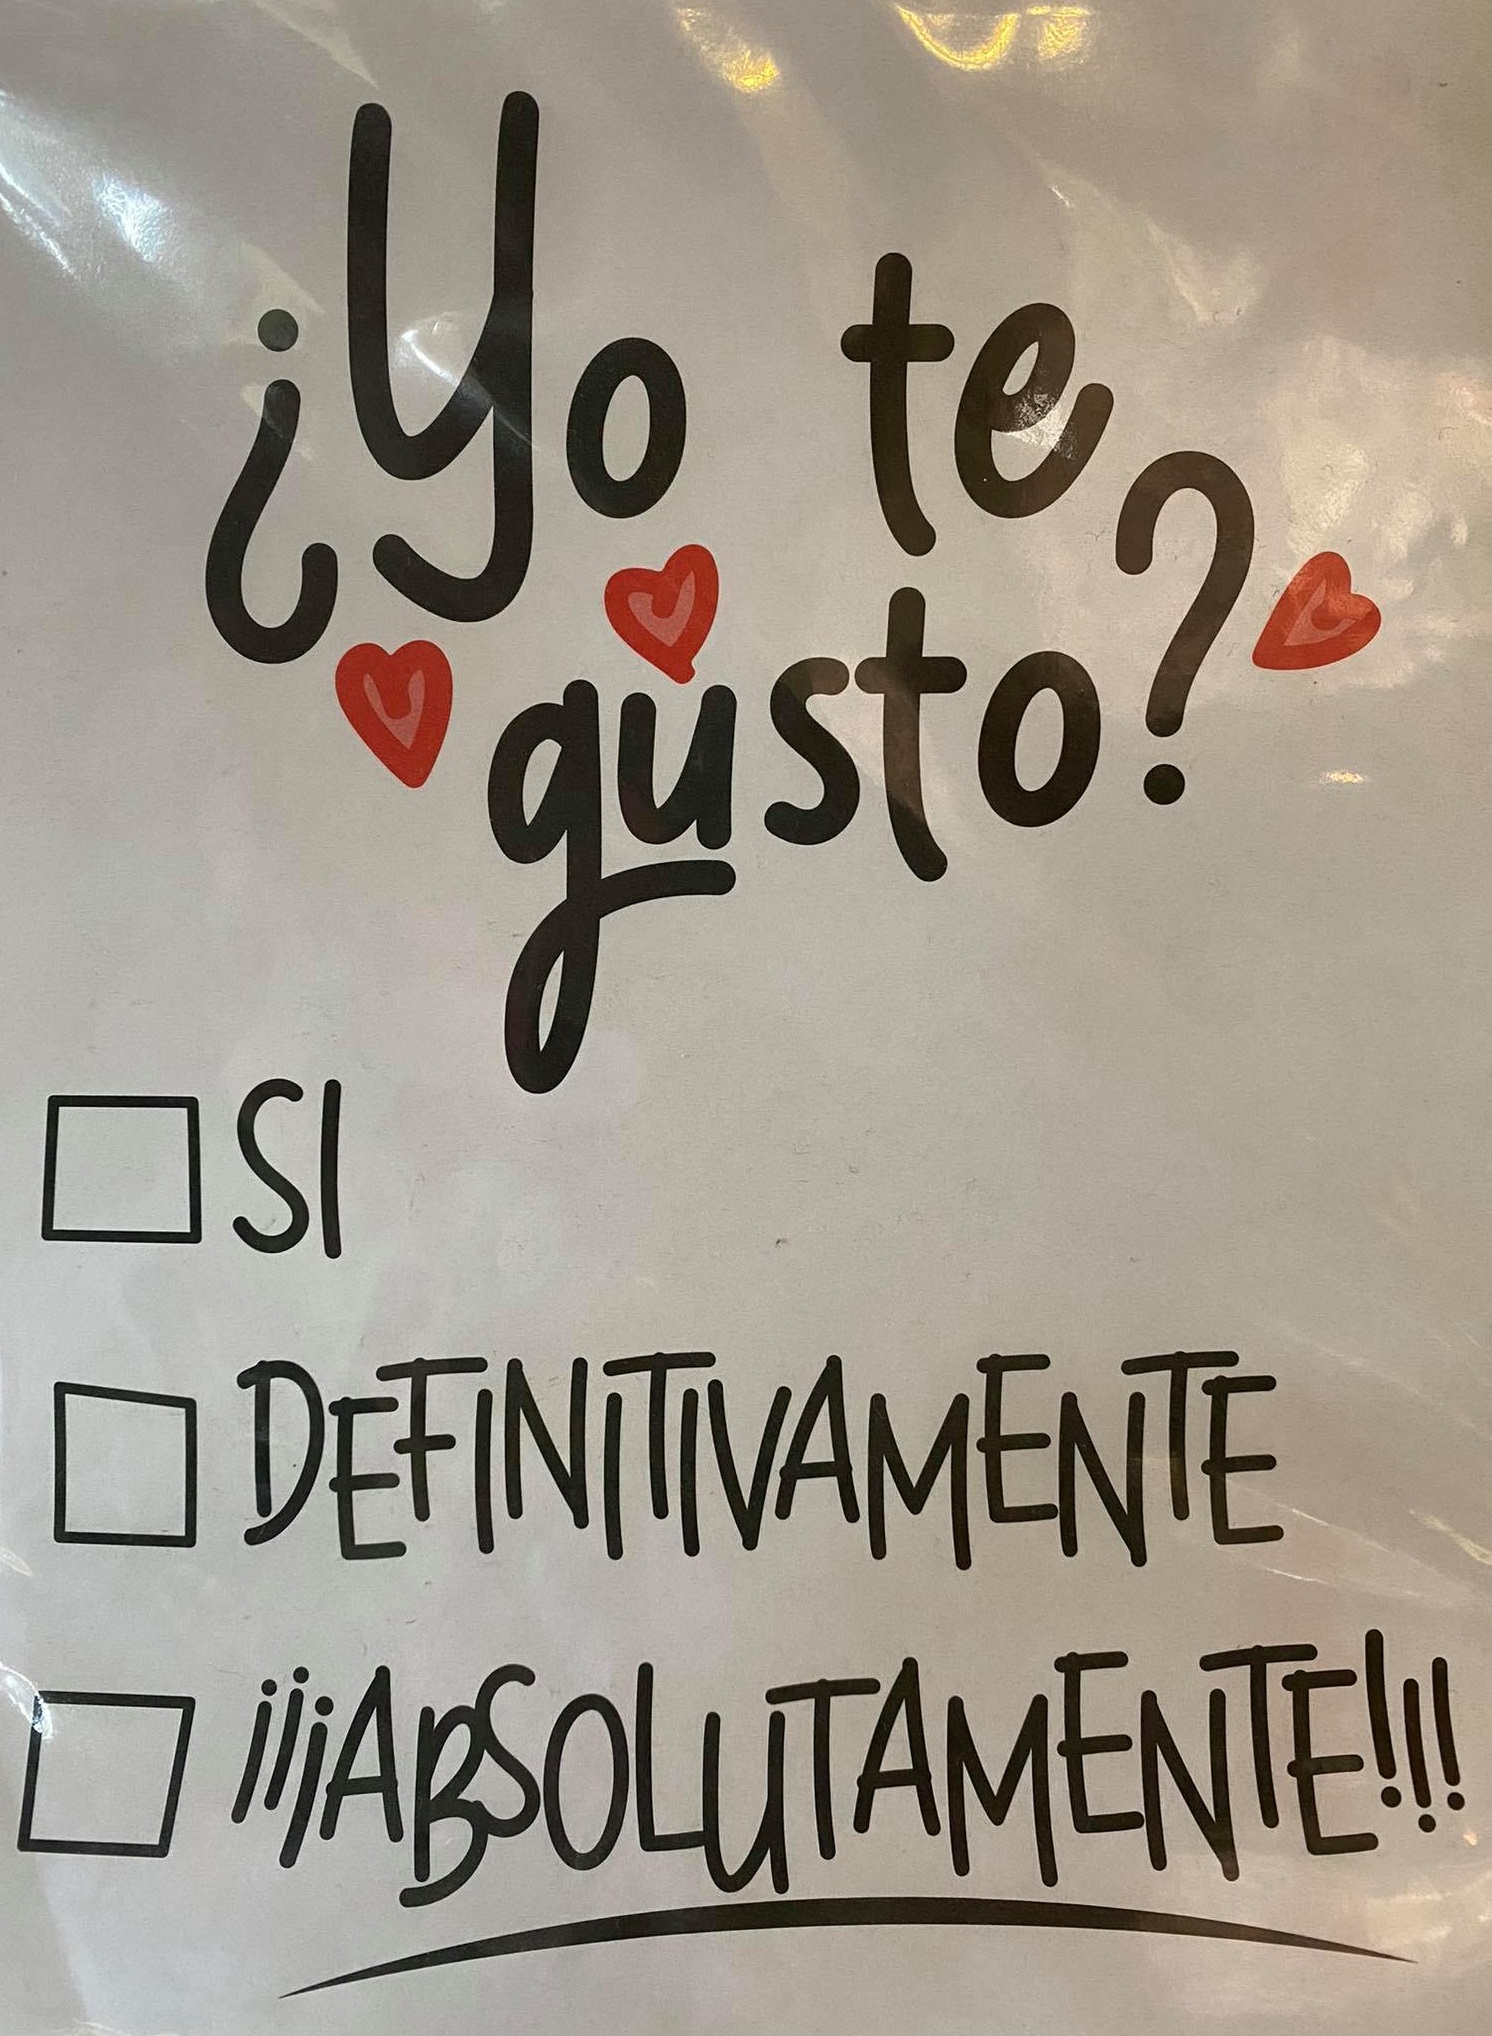 ¿Yo te
gusto?
SI
DEFINITIVAMENTE
¡¡¡ABSOLUTAMENTE!!!